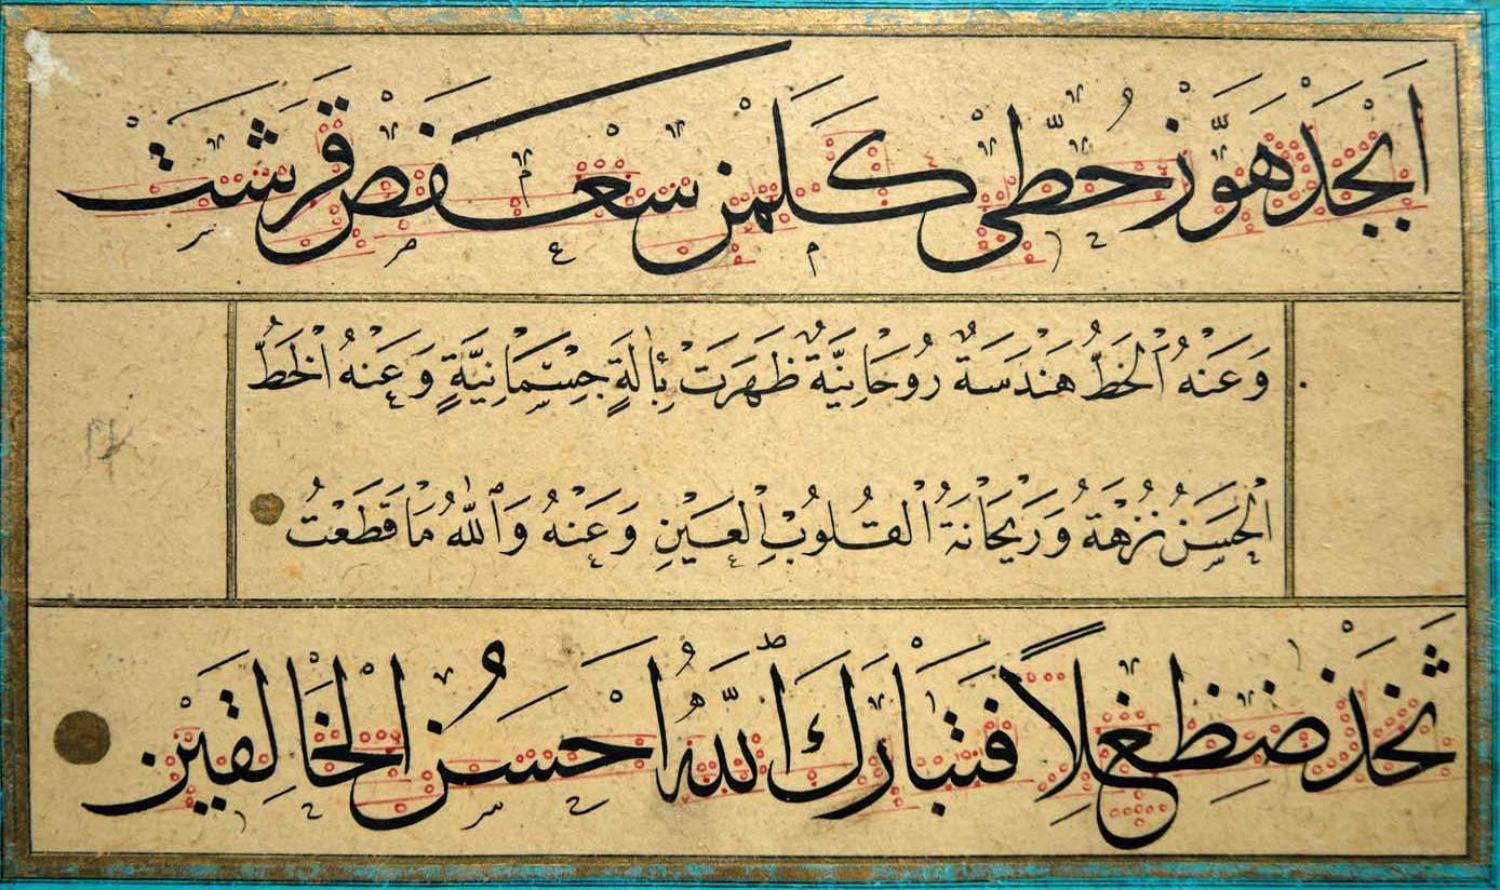 اَبْجَدْ هَوَّزْ حُطِّي كَلَمَنْ سَعْفَصْ قَرَشَتْ
وَعَنْهُ اَلْخَطُّ هَنْدَسَةٌ رُوحَانِيَّةٌ ظَهَرَتْ بِاٰلَةٍ جِسْمَانِيَّةٍ وَعَنْهُ اَلْخَطُّ
اَلْحَسَنُ نُزْهَةُ وَرَيْحَانَةُ الْقُلُوبْ اِلْعَيْنِ وَعَنْهُ وَاَللّٰهُ مَا قَطَعْتُ
ثَخَذْ ضَظَغْلاً فَتَبَارَكَ اَللّٰهُ اَحْسَنُ الْخَالِقَيْنْ